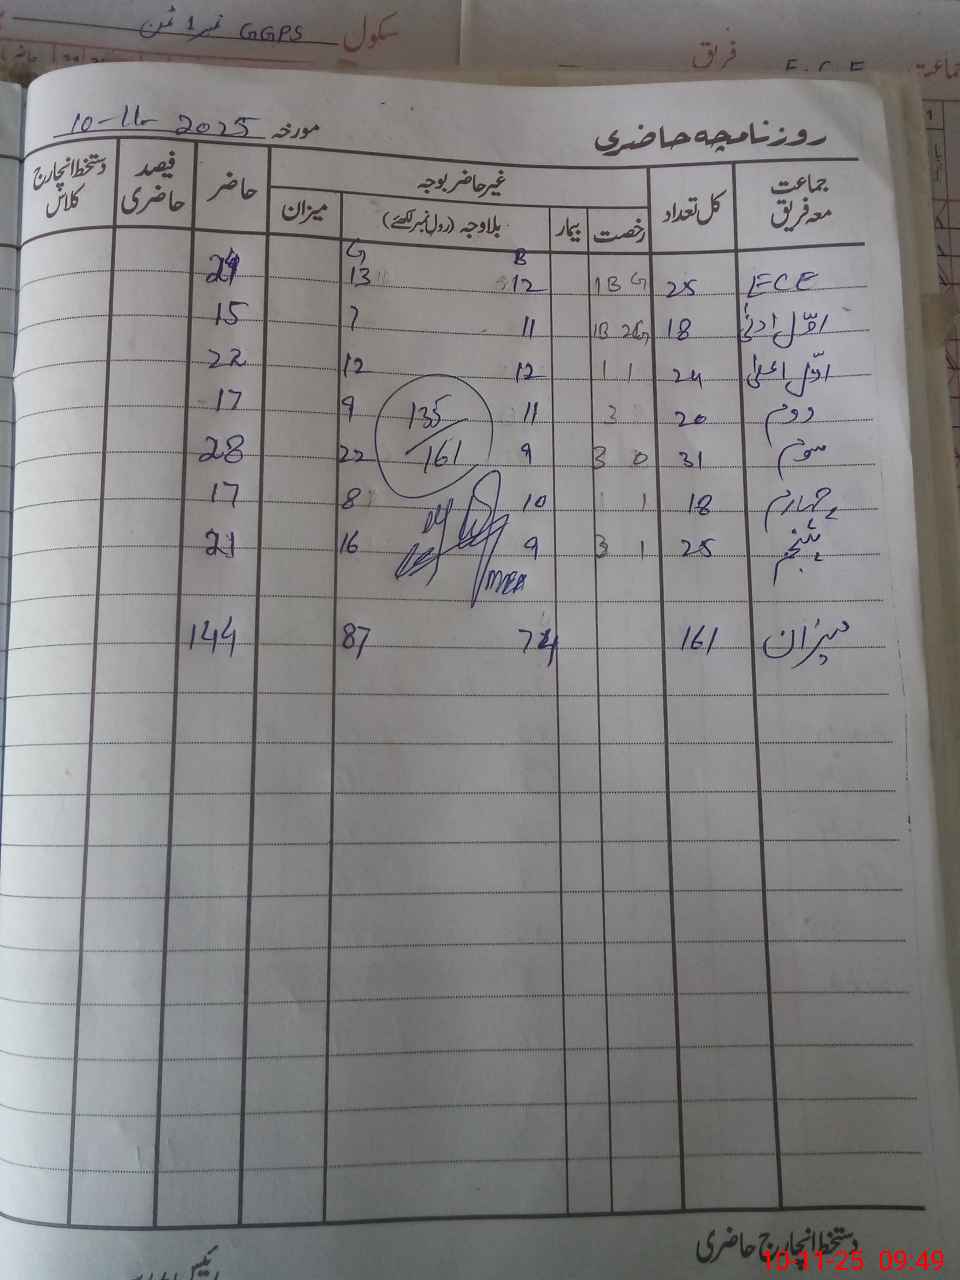 سکول GGPS نمبر 1 ٹمن
فریق E.C.E
روزنامچہ حاضری مورخہ 10-11-2025
جماعت معہ فریق کل تعداد غیر حاضر بوجہ حاضر فیصد حاضری دستخط انچارج کلاس
رخصت بیمار بلاوجہ (رول نمبر لکھئے) میزان
B G
ECE 25 1B G 12 13 24
اوّل ادنیٰ 18 1B 2G 11 7 15
اوّل اعلیٰ 24 1 1 12 12 22
دوم 20 3 11 9 17
سوم 31 3 0 9 22 28
چہارم 18 1 1 10 8 17
پنجم 25 3 1 9 16 21
135
161
میزان 161 74 87 144
دستخط انچارج حاضری
10-11-25 09:49